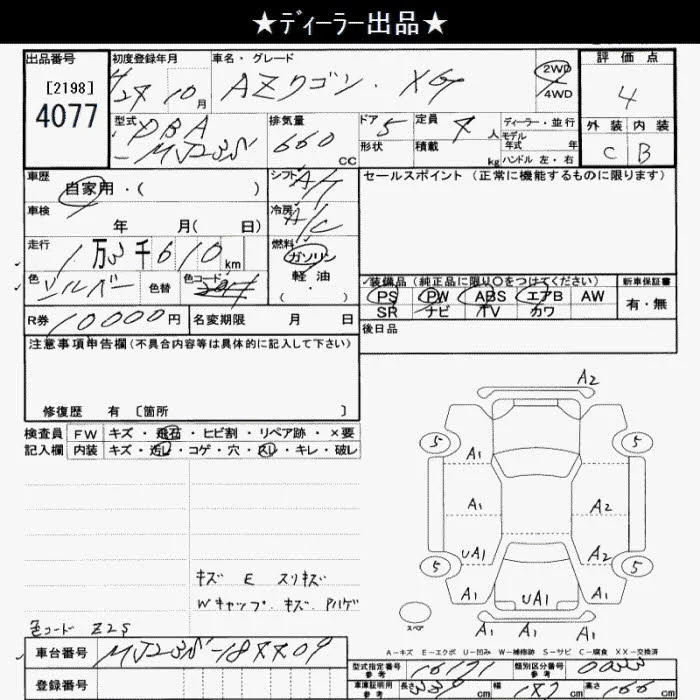 ★ディーラー出品★
出品番号
[2198]
4077
初度登録年月
24 10 月
車名・グレード
AZワゴン・XG
2WD
4WD
評価点
4
外装 内装
C B
型式
DBA
-MJ23S
排気量
660
CC
ドア 5
形状
定員 4 人
積載 kg
ディーラー・並行
モデル
年式 年
ハンドル 左・右
車歴
自家用・( )
シフト
A/T
セールスポイント(正常に機能するものに限ります)
車検
年 月( 日)
冷房
A/C
走行
1万3千610km
燃料
ガソリン
軽油
( ・ )
色
シルバー
色替
色コード
装備品(純正品に限り○をつけてください)
PS PW ABS エアB AW
SR ナビ TV カワ
新車保証書
有・無
R券 10000円
名変期限 月 日
後日品
注意事項申告欄(不具合内容等は具体的に記入して下さい)
修復歴 有 〔箇所 〕
検査員
記入欄
FW キズ・飛石・ヒビ割・リペア跡・×要
内装 キズ・汚レ・コゲ・穴・スレ・キレ・破レ
A2
5 5
A1
A1 A2
UA1 A2
5 5
A1 UA1 A1
A1 A1 A1
スペア
キズ E スリキズ
Wキャップ キズ Pハゲ
A-キズ E-エクボ U-凹み W-補修跡 S-サビ C-腐食 XX-交換済
色コード Z2S
車台番号
MJ23S-18XX09
登録番号
型式指定番号
参考
16171
類別区分番号
参考
車庫証明用
参考
長さ 339 cm
幅 147 cm
高さ 166 cm